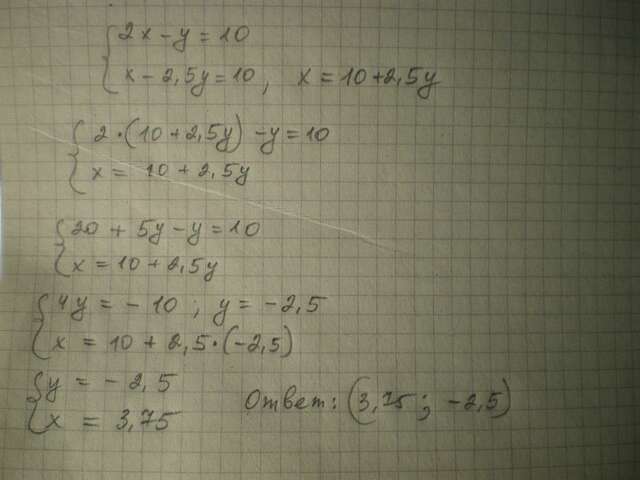 2x - y = 10
x - 2,5y = 10, x = 10 + 2,5y
2·(10 + 2,5y) - y = 10
x = 10 + 2,5y
20 + 5y - y = 10
x = 10 + 2,5y
4y = - 10 ; y = - 2,5
x = 10 + 2,5·(-2,5)
y = - 2,5
x = 3,75 Ответ: (3,75 ; -2,5)